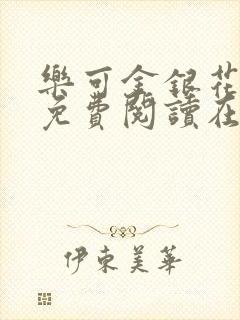 樂可金銀花
免費閱讀在
伊東美華